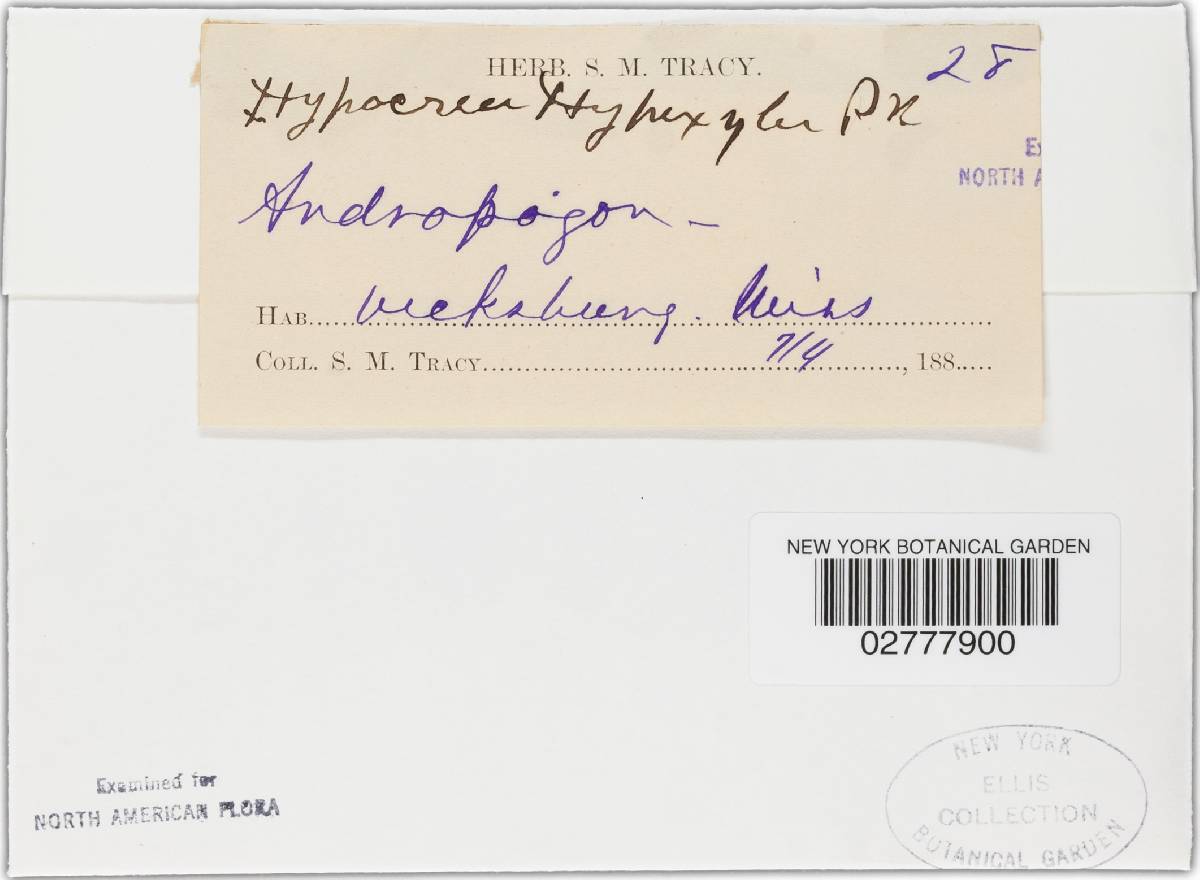 HERB. S. M. TRACY.
28
Hypocrea Hypoxyla Pk
Ex
NORTH A
Andropogon —
HAB. Vicksburg. Miss
COLL. S. M. TRACY 7/4, 188
NEW YORK BOTANICAL GARDEN
02777900
Examined for
NORTH AMERICAN FLORA
NEW YORK
ELLIS
COLLECTION
BOTANICAL GARDEN